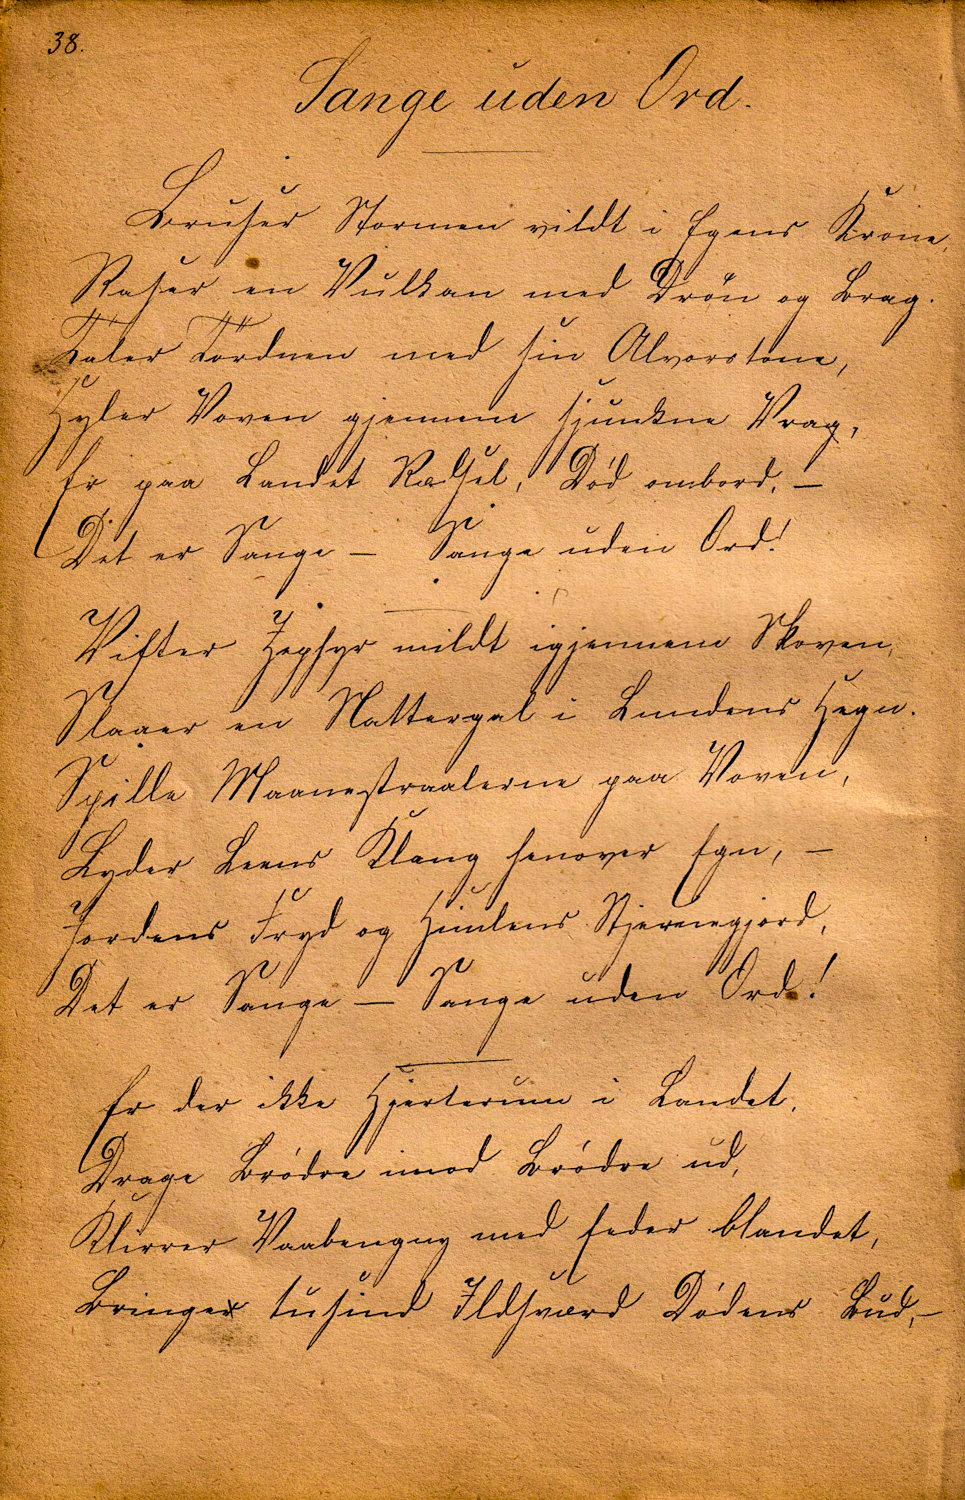 38.
Sange uden Ord.
Bruser Stormen vildt i Egens Krone,
Raser en Vulkan med Drøn og Brag.
Taler Tordnen med sin Alvorstone,
Hyler Voven gjennem sjunkne Vrag,
Er paa Landet Rædsel, Død ombord, —
Det er Sange — Sange uden Ord!
Vifter Zephyr mildt igjennem Skoven,
Slaaer en Nattergal i Lundens Hegn.
Spille Maanestraalerne paa Voven,
Lyder Leens Klang henover Egn, —
Jordens Fryd og Himlens Stjernegjord,
Det er Sange — Sange uden Ord!
Er der ikke Hjerterum i Landet,
Drage Brødre imod Brødre ud,
Klirrer Vaabengny med Eder blandet,
Bringer tusind Ildsværd Dødens Bud, —